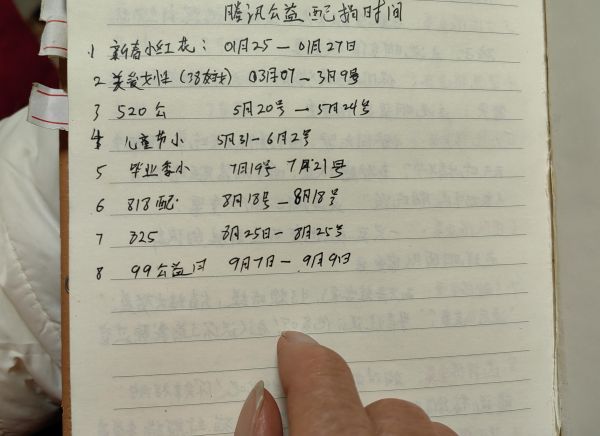 腾讯公益配捐时间
1 新春小红花：01月25－01月27日
2 关爱女性（38妇女） 03月07－3月9号
3 520公 5月20号－5月24号
4 儿童节小 5月31－6月2号
5 毕业季小 7月19号 7月21号
6 818配 8月18号－8月18号
7 825 8月25日－8月25号
8 99公益日 9月7日－9月9日